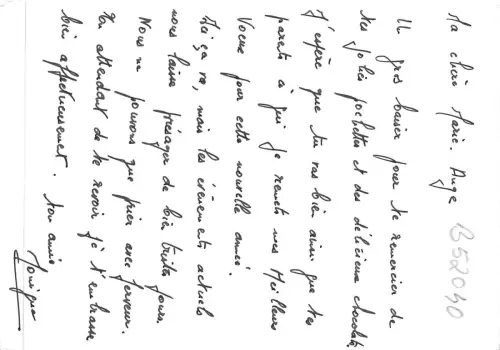 Ma chère Marie. Ange
B52030
Un gros baiser pour te remercier de
tes jolies pochettes et des délicieux chocolats
J'espère que tu vas bien ainsi que tes
parents à qui je remets mes Meilleurs
Voeux pour cette nouvelle année.
Ici ça va, mais les événements actuels
nous laisse présager de bien tristes jours.
Nous ne pouvons que prier avec ferveur.
En attendant de te revoir je t'embrasse
bien affectueusement. ton amie